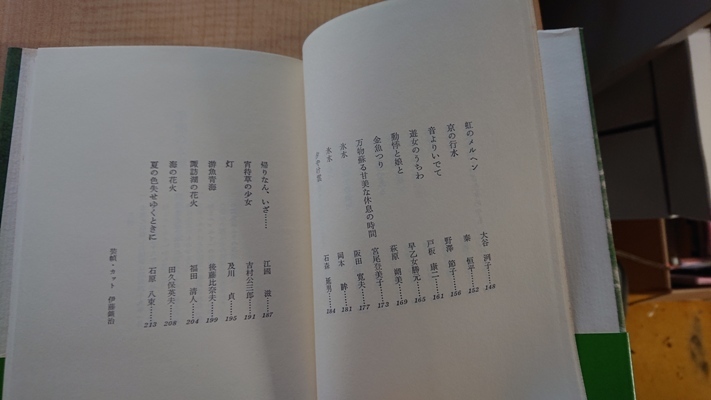 虹のメルヘン 大谷 洌子……148
京の行水 秦 恒平……152
音よりいでて 野澤 節子……156
遊女のうちわ 戸板 康二……161
勘忰と娘と 早乙女勝元……165
金魚つり 萩原 葉子……169
万物蘇る甘美な休息の時間 宮尾登美子……173
氷水 阪田 寛夫……177
氷水 岡本 眸……181
184
帰りなん、いざ…… 江國 滋……187
宵待草の少女 吉村公三郎……191
灯 及川 貞……195
游魚青海 後藤比奈夫……199
諏訪湖の花火 福田 清人……204
海の花火 田久保英夫……208
夏の色失せゆくときに 石原 八束……213
装幀・カット 伊藤鑛治